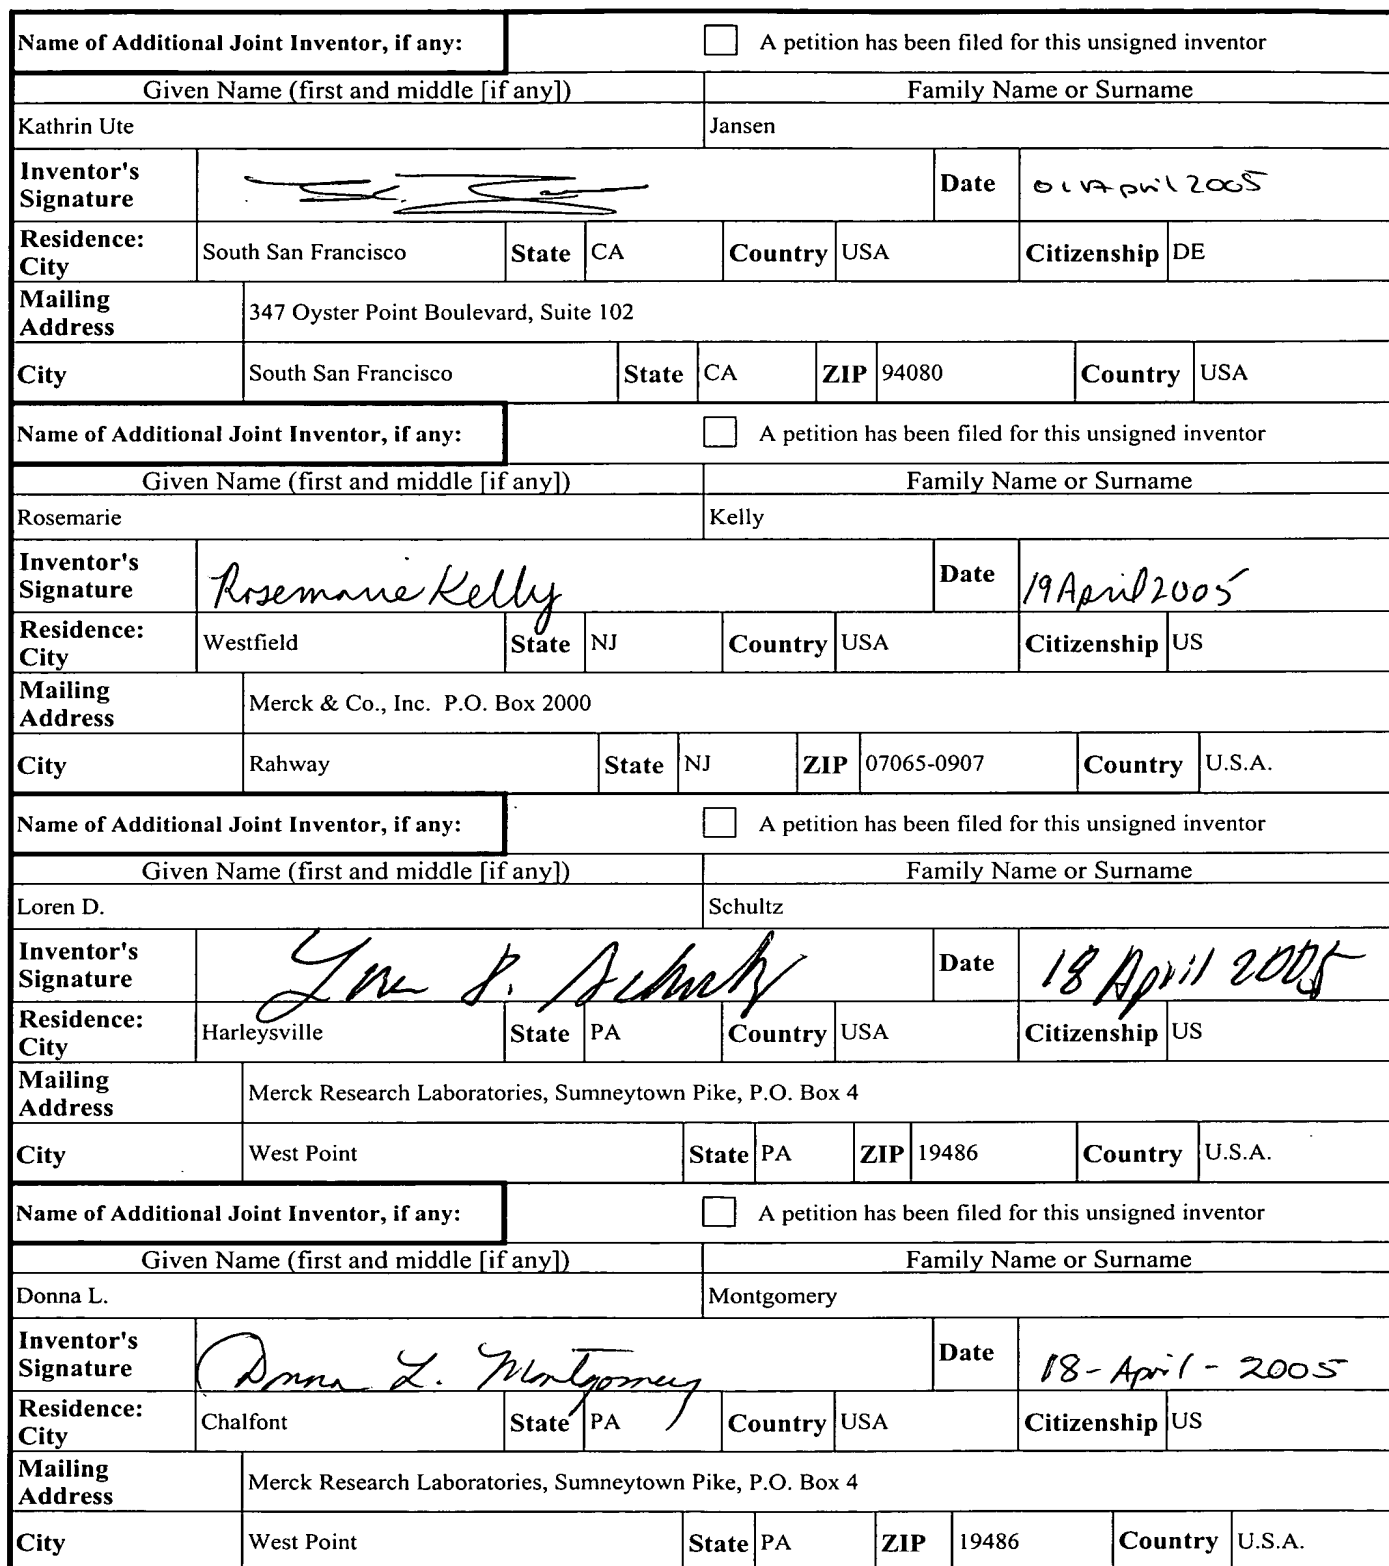 Name of Additional Joint Inventor, if any: A petition has been filed for this unsigned inventor
Given Name (first and middle [if any]) Family Name or Surname
Kathrin Ute Jansen
Inventor's Signature Date 01 April 2005
Residence: City South San Francisco State CA Country USA Citizenship DE
Mailing Address 347 Oyster Point Boulevard, Suite 102
City South San Francisco State CA ZIP 94080 Country USA
Name of Additional Joint Inventor, if any: A petition has been filed for this unsigned inventor
Given Name (first and middle [if any]) Family Name or Surname
Rosemarie Kelly
Inventor's Signature Rosemarie Kelly Date 19 April 2005
Residence: City Westfield State NJ Country USA Citizenship US
Mailing Address Merck & Co., Inc. P.O. Box 2000
City Rahway State NJ ZIP 07065-0907 Country U.S.A.
Name of Additional Joint Inventor, if any: A petition has been filed for this unsigned inventor
Given Name (first and middle [if any]) Family Name or Surname
Loren D. Schultz
Inventor's Signature Loren D. Schultz Date 18 April 2005
Residence: City Harleysville State PA Country USA Citizenship US
Mailing Address Merck Research Laboratories, Sumneytown Pike, P.O. Box 4
City West Point State PA ZIP 19486 Country U.S.A.
Name of Additional Joint Inventor, if any: A petition has been filed for this unsigned inventor
Given Name (first and middle [if any]) Family Name or Surname
Donna L. Montgomery
Inventor's Signature Donna L. Montgomery Date 18-April-2005
Residence: City Chalfont State PA Country USA Citizenship US
Mailing Address Merck Research Laboratories, Sumneytown Pike, P.O. Box 4
City West Point State PA ZIP 19486 Country U.S.A.